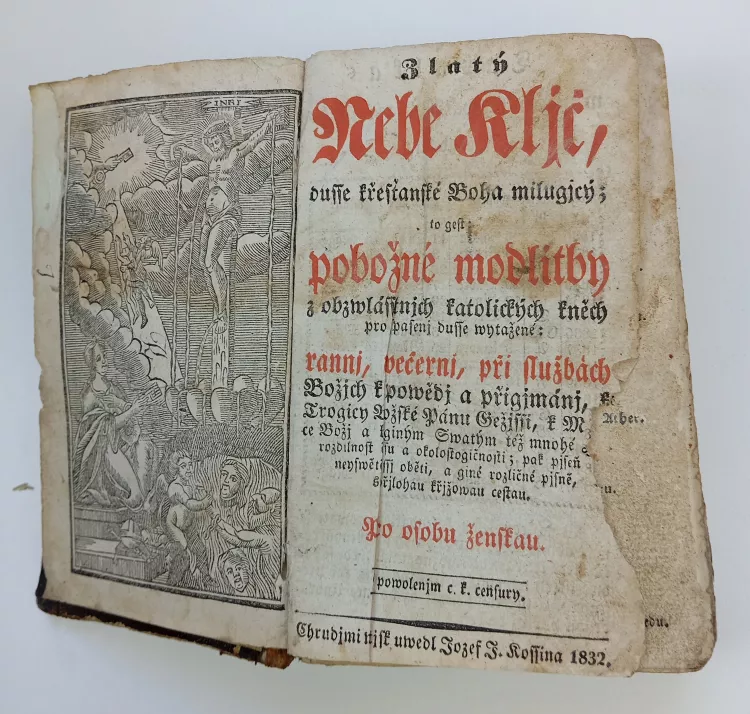 INRI
Zlatý
Nebe Kljč,
dusse křesťanské Boha milugjcý;
to gest:
pobožné modlitby
z obzwlásstnjch katolických kněch
pro spasenj dusse wytažené:
rannj, večernj, při službách
Božjch k powědj a přigjmánj, k
Trogicy Božské Pánu Gežissi, k M
ce Božj a giným Swatým též mnohé
rozdilnost su a okolostogičnosti; pak pjseň
neyswětěgssj oběti, a giné rozličné pjsně,
přjlohau křjžowau cestau.
Po osobu ženskau.
powolenjm c. k. censury.
Chrudjmi tisk uwedl Jozef J. Kossina 1832.
Ather.
edu.